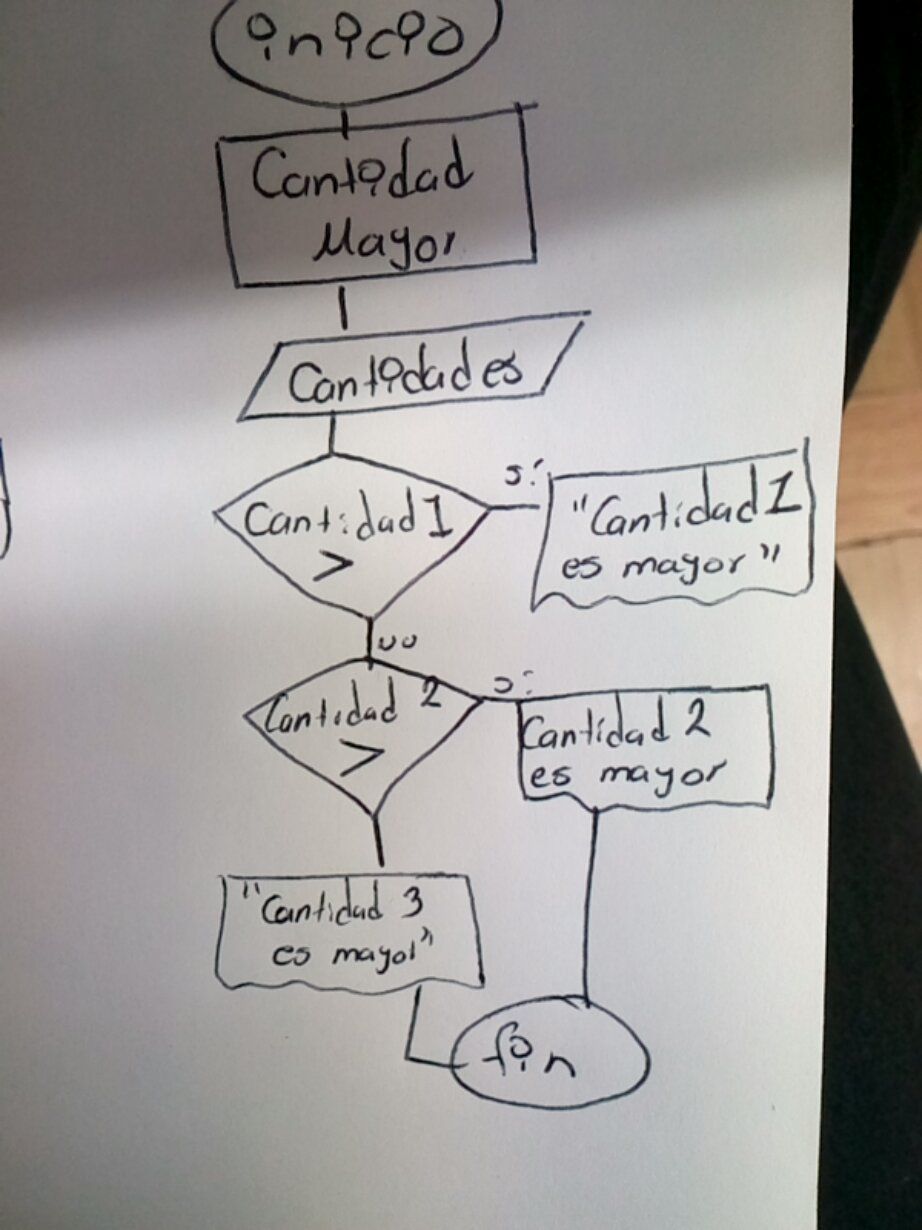 inicio
Cantidad
Mayor
Cantidades
Cantidad 1
>
si
"Cantidad 1
es mayor"
no
Cantidad 2
>
si
Cantidad 2
es mayor
"Cantidad 3
es mayor"
fin